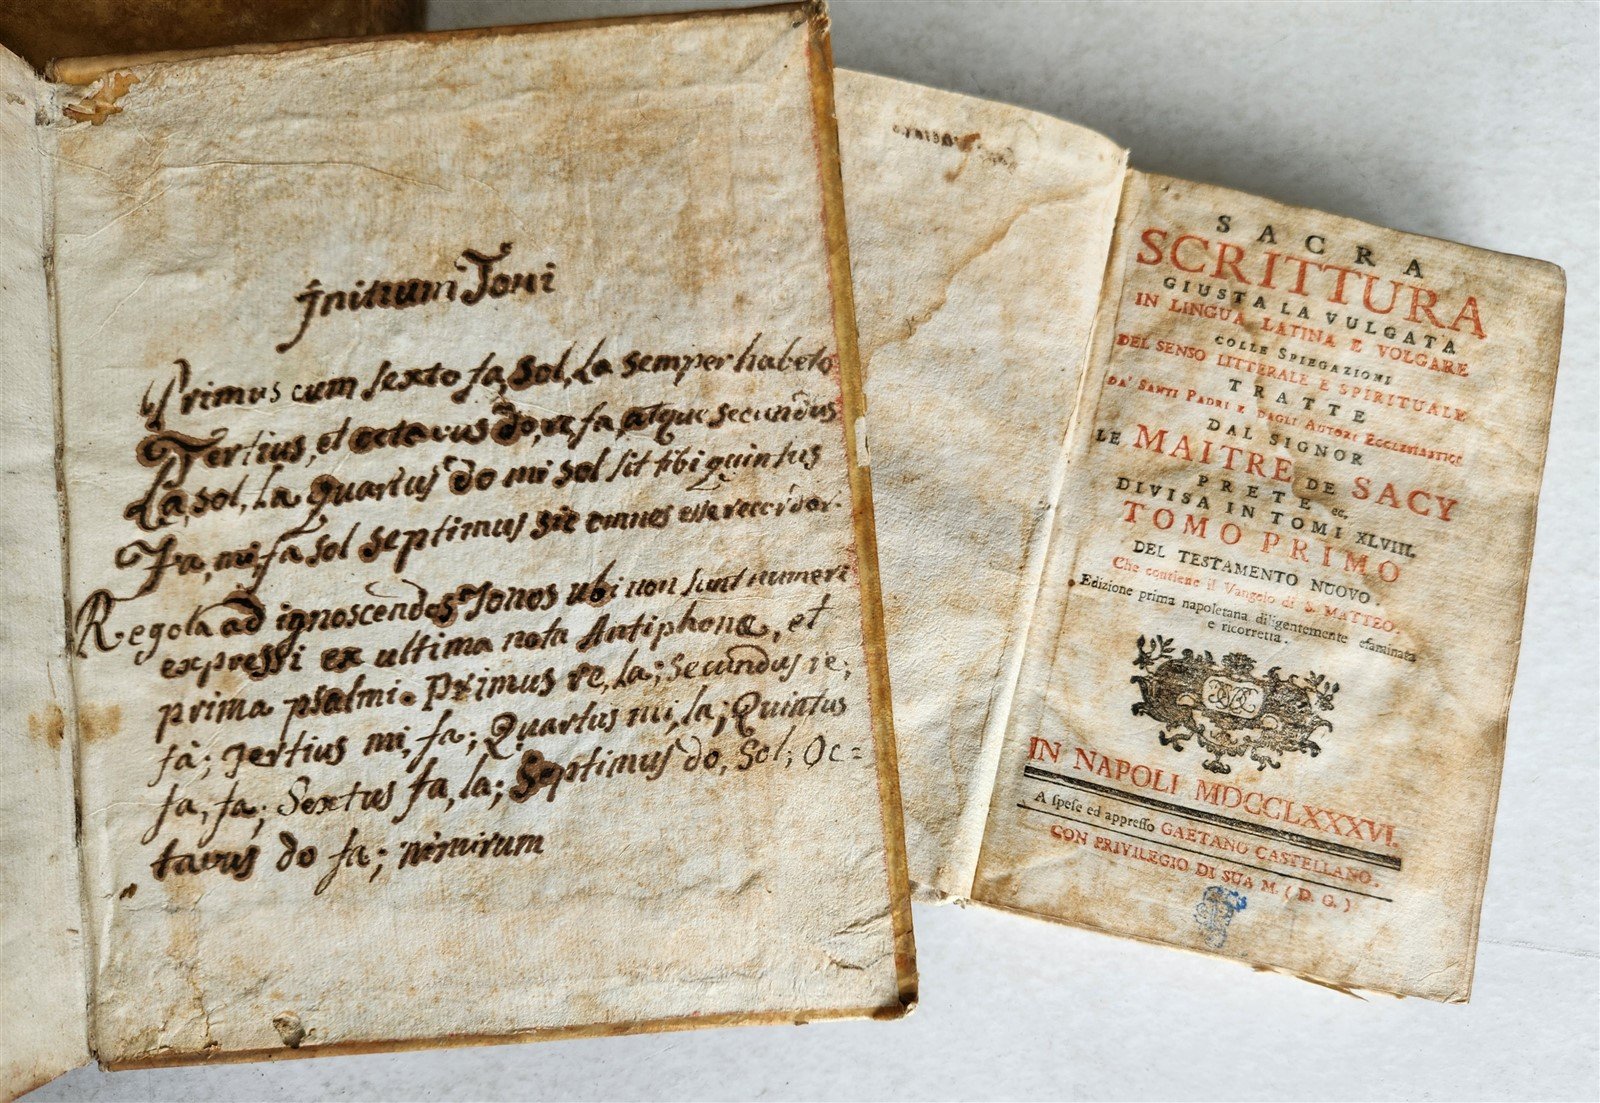 Initium Toni
Primus cum sexto fa, sol, la semper habeto
Tertius, et octavus do, re, fa, atque secundus
La, sol, la Quartus do mi sol sit tibi quintus
Fa, mi, fa sol septimus sic omnes esse recordor.
Regola ad ignoscendos Tonos ubi non sunt numeri
expressi ex ultima nota Antiphonæ, et
prima psalmi. Primus re, la; secundus re,
fà; Tertius mi, fa; Quartus mi, la; Quintus
fa, fa; Sextus fa, la; Septimus do, sol; Oc=
tavus do fa; nimirum
SACRA
SCRITTURA
GIUSTA LA VULGATA
IN LINGUA LATINA E VOLGARE
COLLE SPIEGAZIONI
DEL SENSO LITTERALE E SPIRITUALE
TRATTE
DA' SANTI PADRI E DAGLI AUTORI ECCLESIASTICI
DAL SIGNOR
LE MAITRE DE SACY
PRETE ec.
DIVISA IN TOMI XLVIII.
TOMO PRIMO
DEL TESTAMENTO NUOVO.
Che contiene il Vangelo di S. MATTEO.
Edizione prima napoletana diligentemente esaminata
e ricorretta.
IN NAPOLI MDCCLXXXVI.
A spese ed appresso GAETANO CASTELLANO.
CON PRIVILEGIO DI SUA M. ( D. G. )